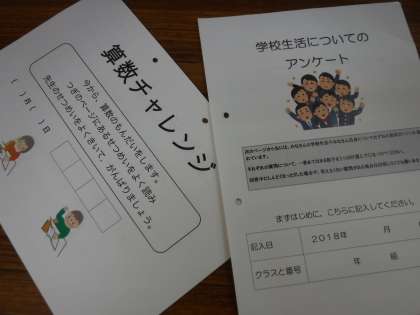 算数チャレンジ
今から、算数のもんだいをします。
つぎのページにあるせつめいをよく読み
先生のせつめいをよくきいて、がんばりましょう。
(　)月(　)日
学校生活についての
アンケート
まずはじめに、こちらに記入してください。
記入日 2018年 月
クラスと番号 年 組